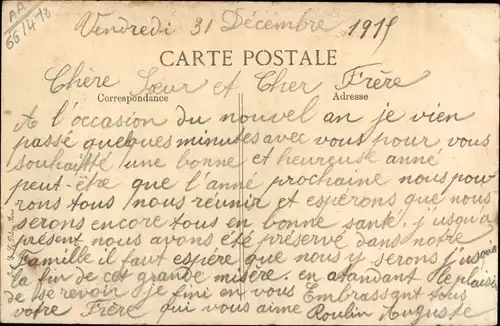 AA
66/418
Vendredi 31 Décembre 1915
CARTE POSTALE
Chère Sœur et Cher Frère
Correspondance Adresse
A l'occasion du nouvel an je vien
passé quelques minutes avec vous pour vous
souhaitté une bonne et heureuse anné
peut-être que l'anné prochaine nous pour
rons tous nous réunir et espérons que nous
serons encore tous en bonne santé, jusqu'a
présent nous avons été préservé dans notre
famille il faut espére que nous y serons jusqua
la fin de cet grande misére. en atandant le plaisir
de se revoir je fini en vous Embrassant tous
votre Frère qui vous aime Roulin Auguste